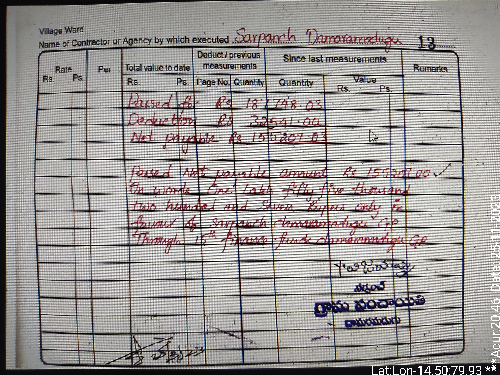 Village Ward
Name of Contractor or Agency by which executed Sarpanch Damaramadugu 13
Rate Rs. Ps.
Per
Total value to date Rs. Ps.
Deduct / previous measurements Page No. Quantity
Since last measurements Quantity Value Rs. Ps.
Remarks
Passed for Rs 187748-03
Deduction Rs 32541-00
Net payable Rs 155207-03
Passed Net payable amount Rs 155207.00
In words One Lakh fifty five thousand
two hundred and seven Rupees only in
favour of Sarpanch damaramadugu GP
Through 15th finance funds damaramadugu GP
సర్పంచ్
గ్రామ పంచాయతి
దామరమడుగు
Lat Lon-14.50:79.93